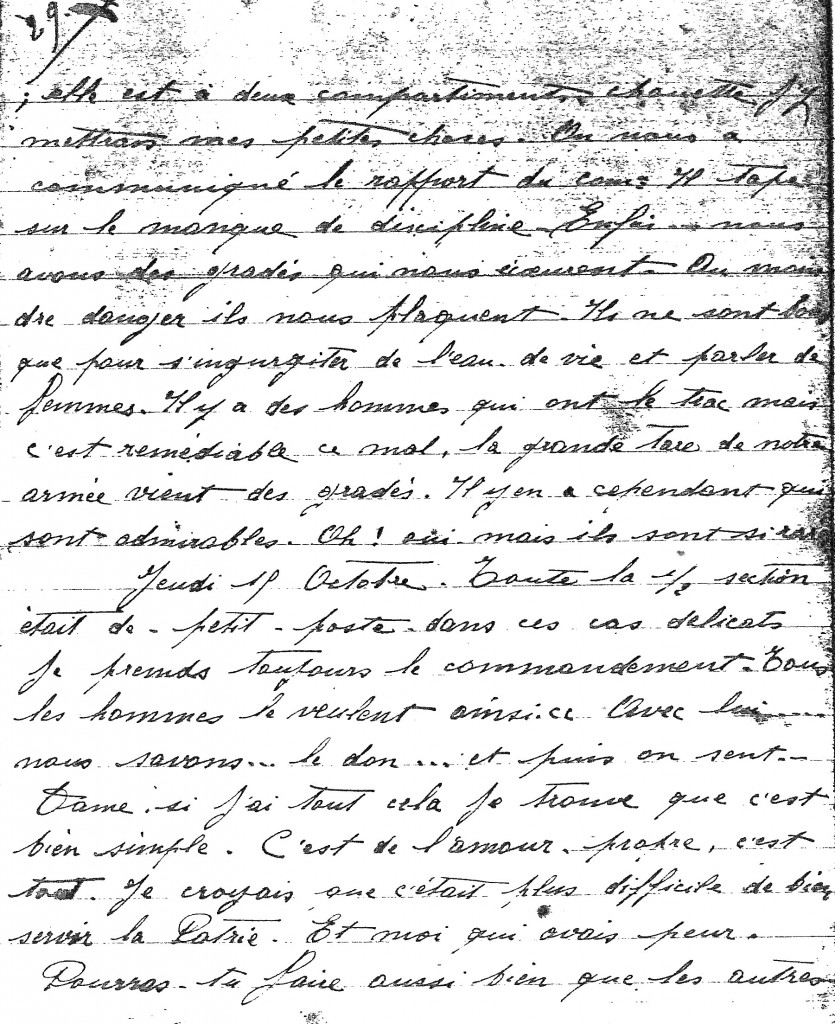 29
; elle est à deux compartiments chouette j'y
mettrais mes petites choses. On nous a
communiqué le rapport du com: Il tape
sur le manque de discipline. Enfin nous
avons des gradés qui nous écœurent. Au moin
dre danger ils nous plaquent. Ils ne sont bon
que pour s'ingurgiter de l'eau-de-vie et parler de
femmes. Il y a des hommes qui ont le trac mais
c'est remédiable ce mal, la grande tare de notre
armée vient des gradés. Il y en a cependant qui
sont admirables. Oh! oui mais ils sont si rares
Jeudi Octobre. Toute la 1/2 section
était de petit-poste dans ces cas délicats
je prends toujours le commandement. Tous
les hommes le veulent ainsi. Avec lui....
nous savons... le don.... et puis on sent..
Dame si j'ai tout cela je trouve que c'est
bien simple. C'est de l'amour-propre, c'est
tout. Je croyais que c'était plus difficile de bien
servir la Patrie. Et moi qui avais peur.
Pourras-tu faire aussi bien que les autres